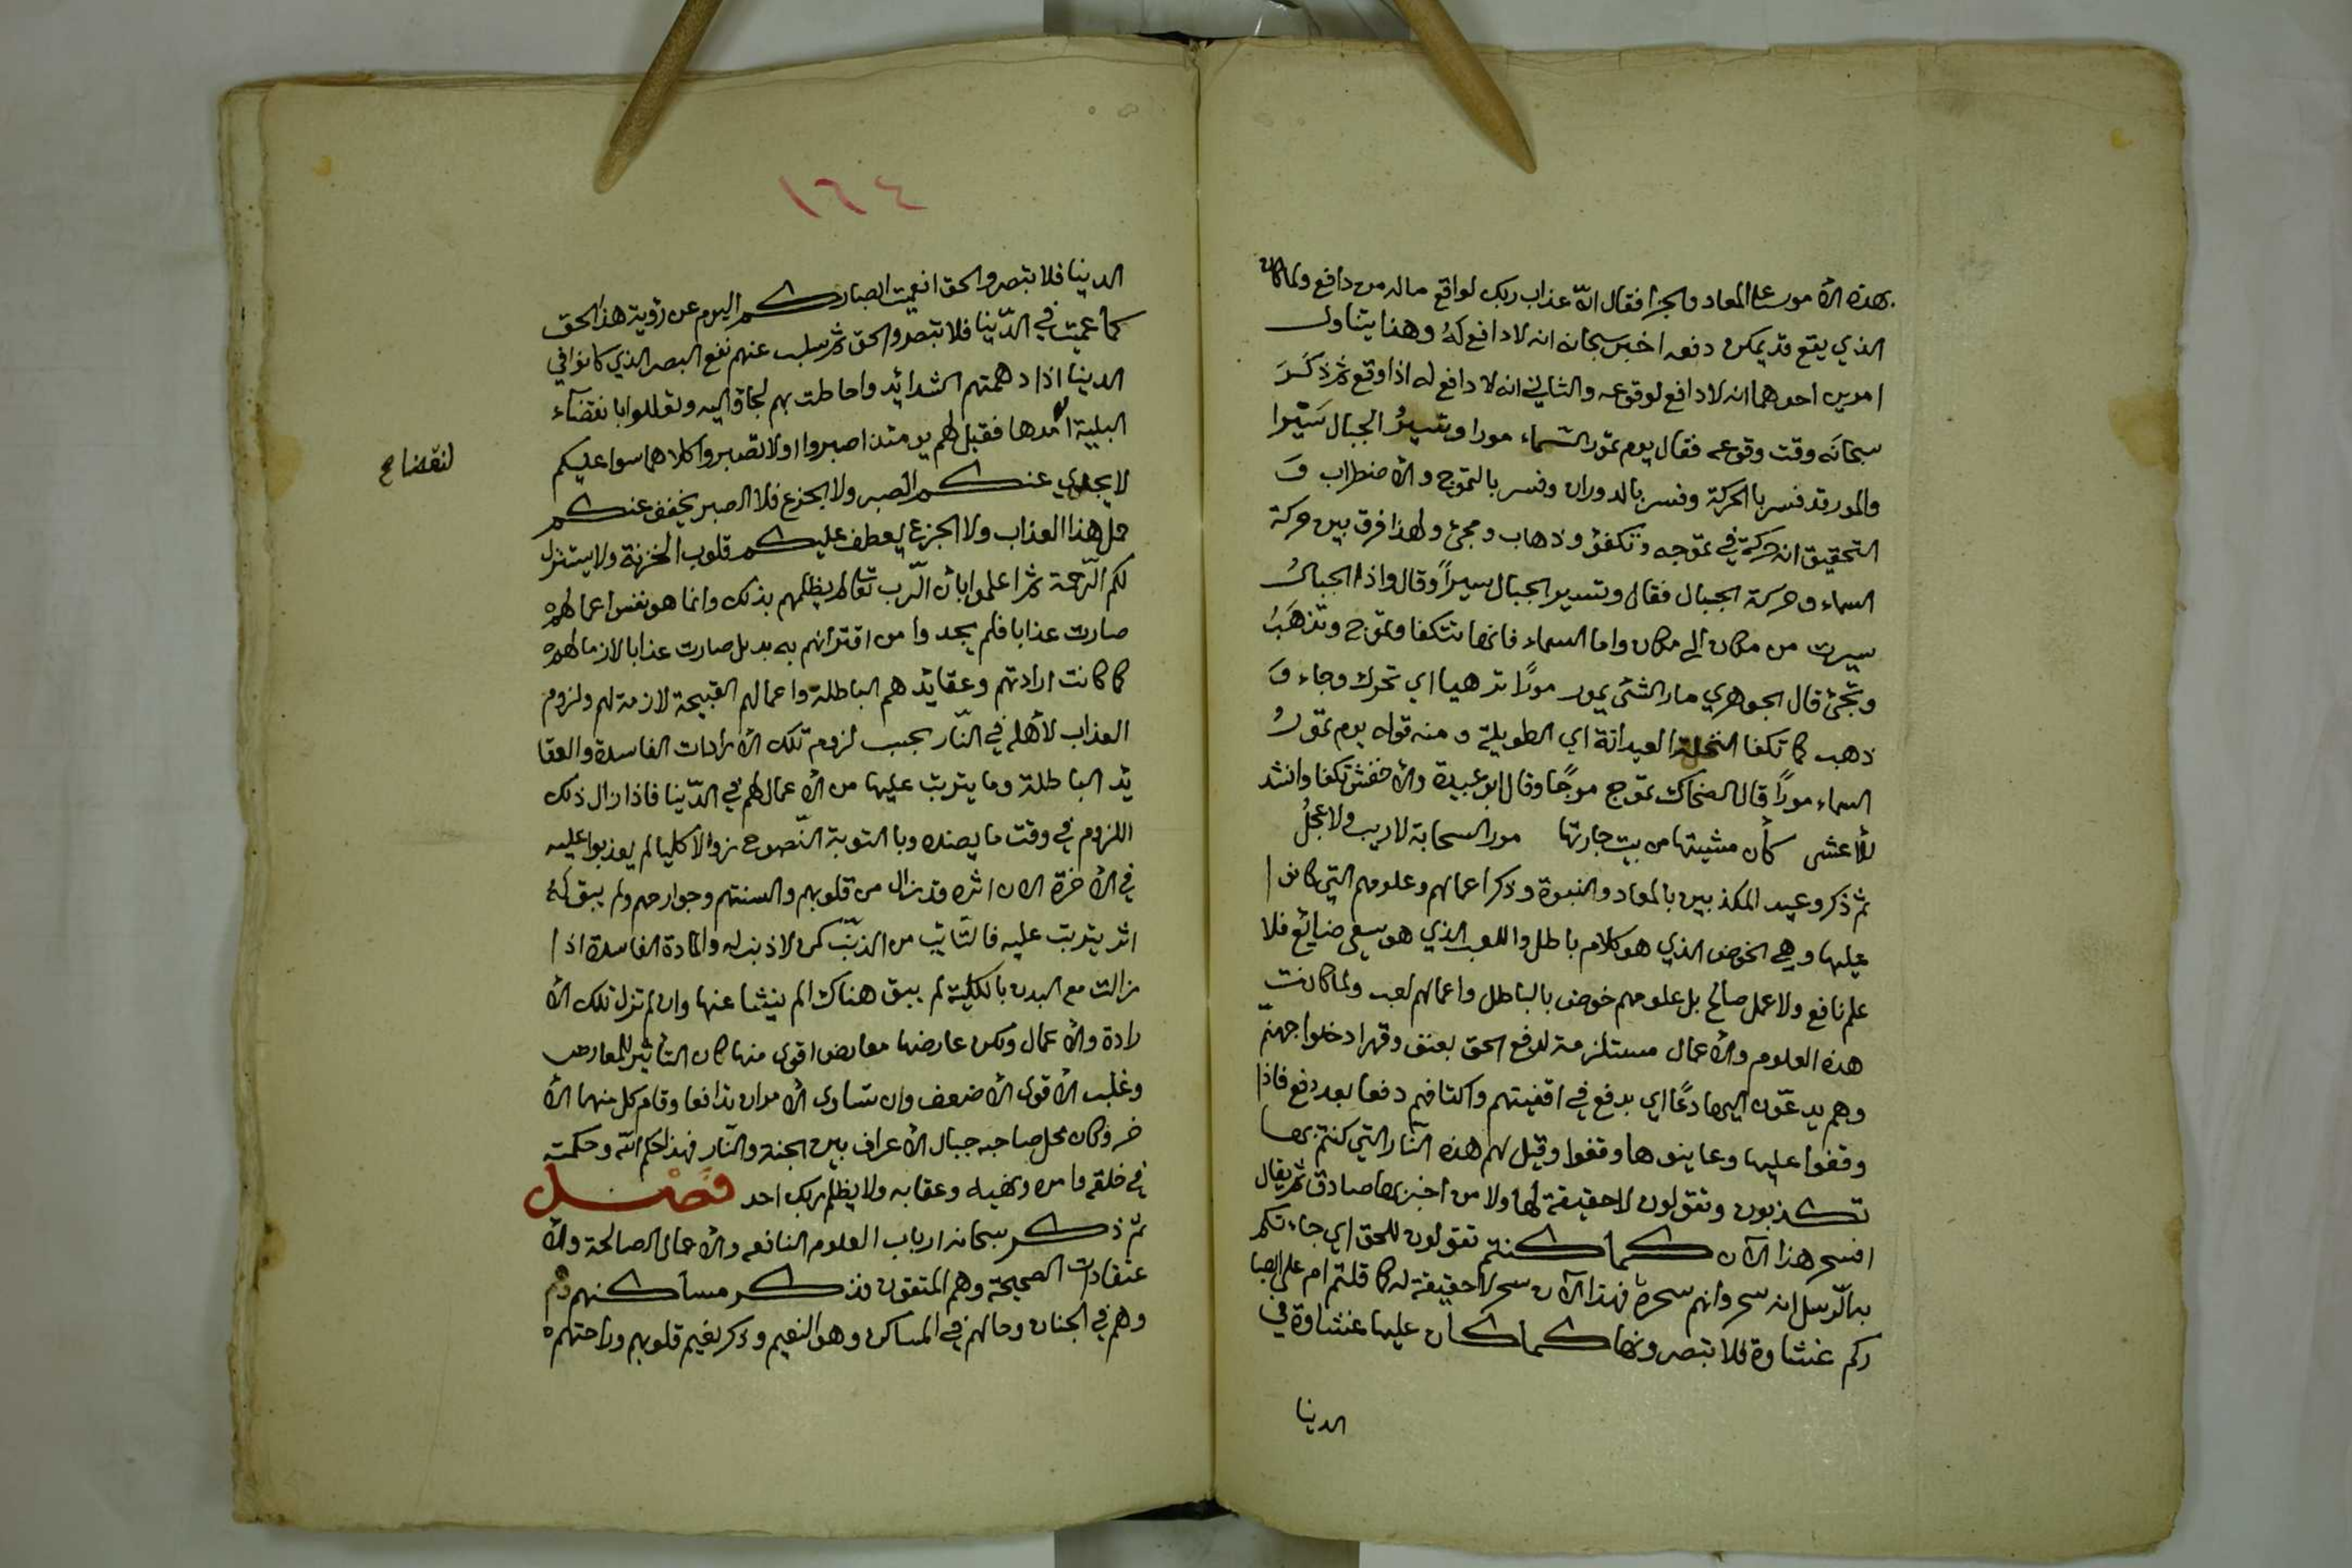 بهذه الأمور على المعاد والجزا فقال ان عذاب ربك لواقع ماله من دافع ولما كان
الذي يقع قد يمكن دفعه اخبر سبحانه انه لا دافع له وهذا يتناول
امرين احدهما انه لا دافع لوقوعه والثاني انه لا دافع له اذا وقع ثم ذكر
سبحانه وقت وقوعه فقال يوم تمور السماء مورا وتسير الجبال سيرا
والمور قد فسر بالحركة وفسر بالدوران وفسر بالتموج والأضطراب و
التحقيق انه حركة في تموجه وتكفؤ وذهاب ومجئ ولهذا فرق بين حركة
السماء وحركة الجبال فقال وتسير الجبال سيراً وقال واذا الجبال
سيرت من مكان الى مكان واما السماء فانها تتكفا وتموج وتذهب
وتجئ قال الجوهري مار الشئ يمور موراً ترهيا اي تحرك وجاء و
ذهب كما تكفا النخلة العيدانة اي الطويلة ومنه قوله يوم تمور
السماء موراً قال الضحاك تموج موجًا وقال ابو عبيدة والأخفش تكفا وانشد
للأعشى كأن مشيتها من بيت جارتها مور السحابة لا ريب ولا عجل
ثم ذكر وعيد المكذبين بالمعاد والنبوة وذكر اعمالهم وعلومهم التي كانوا
عليها وهي الخوض الذي هو كلام باطل واللعب الذي هو سعي ضائع فلا
علم نافع ولا عمل صالح بل علومهم خوض بالباطل واعمالهم لعب ولما كانت
هذه العلوم والأعمال مستلزمة لدفع الحق بعنف وقهر ادخلوا جهنم
وهم يدعّون اليها دعًا اي يدفع في اقفيتهم واكتافهم دفعا بعد دفع فاذا
وقفوا عليها وعاينوها وقفوا وقيل لهم هذه النّار التي كنتم بها
تكذبون وتقولون لا حقيقة لها ولا من اخبر بها صادق ثم يقال
افسحر هذا الآن كما كنتم تقولون للحق اي جاءتكم
به الرّسل انه سحر وانهم سحرة فهذا الآن سحر لا حقيقة له كما قلتم ام على ابصا
ركم غشاوة فلا تبصرونها كما كان عليها غشاوة في
الدينا
١٦٤
الدينا فلا تبصروا الحق انعميت ابصاركم اليوم عن رؤية هذا الحق
كما عميت في الدّينا فلا تبصروا الحق ثم سلب عنهم نفع البصر الذي كانوا في
الدينا اذا دهمتهم الشدائد واحاطت بهم لجاؤا اليه وتعللوا بانقضآء
البلية لأمدها فقيل لهم يومئذ اصبروا او لا تصبروا كلاهما سوا عليكم
لا يجدي عنكم الصبر ولا الجزع فلا الصبر يخفف عنكم
حمل هذا العذاب ولا الجزع يعطف عليكم قلوب الخزنة ولا يستنزل
لكم الرّحمة ثم اعلموا بأن الرّب تعالى لم يظلمهم بذلك وانما هو نفس اعمالهم
صارت عذابا فلم يجدوا من اقترانهم به بد بل صارت عذابا لازما لهم
كما كانت ارادتهم وعقايدهم الباطلة واعمالهم القبيحة لازمة لهم ولزوم
العذاب لأهله في النّار بحسب لزوم تلك الأرادات الفاسدة والعقا
يد الباطلة وما يترتب عليها من الأعمال لهم في الدّينا فاذا زال ذلك
اللزوم في وقت ما بضده وبالتوبة النّصوح زوالا كليا لم يعذبوا عليه
في الأخرة الان اثره قد زال من قلوبهم والسنتهم وجوارحهم ولم يبق له
اثر يترتب عليه فالتّائب من الذنب كمن لا ذنب له والمادة الفاسدة اذا
زالت مع البدن بالكلية لم يبق هناك الم ينشا عنها وان لم تزل تلك الأ
رادة والأعمال ولكن عارضها معارض اقوى منها كان التأثير للمعارض
وغلب الأقوى الأضعف وان تساوى الأمران تدافعا وقام كل منهما الأ
خر وكان محل صاحبه جبال الأعراف بين الجنة والنّار فهذا حكم الله وحكمته
في خلقه وامره ونهيه وعقابه ولا يظلم ربك احد فصل
ثمّ ذكر سبحانه ارباب العلوم النافعه والأعمال الصالحة والأ
عتقادات الصحيحة وهم المتقون فذكر مساكنهم
وهم في الجنان وحالهم في المساكن وهو النعيم وذكر نعيم قلوبهم وراحتهم